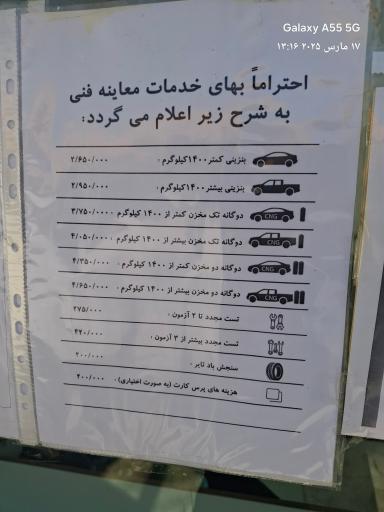 Galaxy A55 5G
۱۷ مارس ۲۰۲۵ ۱۳:۱۶
احتراماً بهای خدمات معاینه فنی
به شرح زیر اعلام می گردد:
بنزینی کمتر ۱۴۰۰کیلوگرم : ۲/۶۵۰/۰۰۰
بنزینی بیشتر ۱۴۰۰کیلوگرم : ۲/۹۵۰/۰۰۰
CNG دوگانه تک مخزن کمتر از ۱۴۰۰ کیلوگرم : ۳/۷۵۰/۰۰۰
CNG دوگانه تک مخزن بیشتر از ۱۴۰۰ کیلوگرم : ۴/۰۵۰/۰۰۰
CNG دوگانه دو مخزن کمتر از ۱۴۰۰ کیلوگرم : ۴/۳۵۰/۰۰۰
CNG دوگانه دو مخزن بیشتر از ۱۴۰۰ کیلوگرم : ۴/۶۵۰/۰۰۰
تست مجدد تا ۲ آزمون : ۲۷۵/۰۰۰
تست مجدد بیشتر از ۳ آزمون : ۴۲۰/۰۰۰
سنجش باد تایر : ۲۰۰/۰۰۰
هزینه های پرس کارت (به صورت اختیاری) : ۴۰۰/۰۰۰